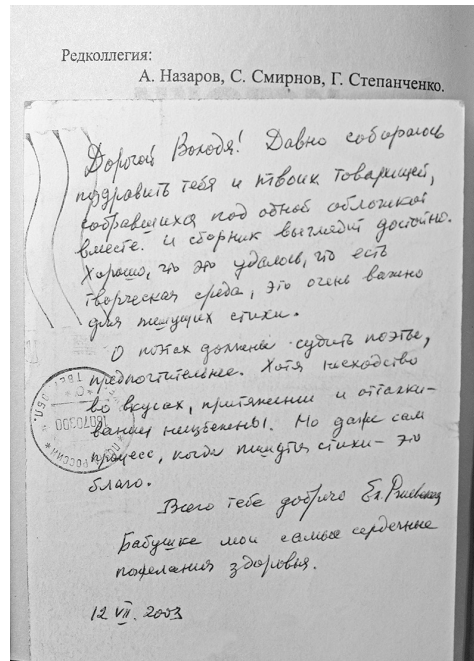 Редколлегия:
А. Назаров, С. Смирнов, Г. Степанченко.
Дорогой Володя! Давно собиралась
поздравить тебя и твоих товарищей,
собравшихся под одной обложкой
вместе. И сборник выглядит достойно.
Хорошо, что это удалось, что есть
творческая среда, это очень важно
для пишущих стихи.
О поэтах должны судить поэты,
предпочтительнее. Хотя несходство
во вкусах, притяжении и отталки-
вании неизбежны. Но даже сам
процесс, когда пишутся стихи – это
благо.
Всего тебе доброго Ел.
Бабушке мои самые сердечные
пожелания здоровья.
12 VII. 2003
РОССИЯ
ОБЛ.